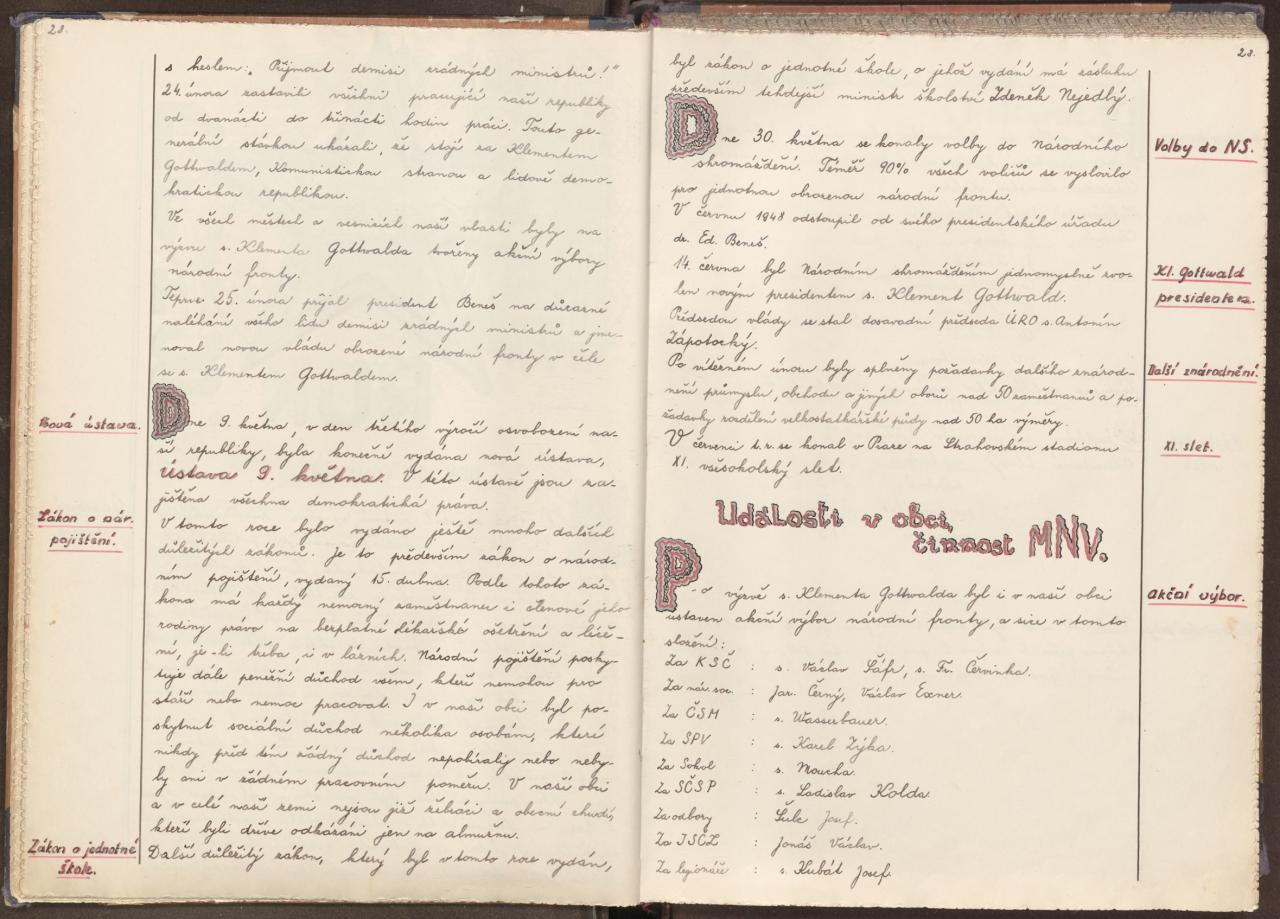 28.
s heslem: „Přijmout demisi zrádných ministrů!"
24. února zastavili všichni pracující naší republiky
od dvanácti do třinácti hodin práci. Touto ge-
nerální stávkou ukázali, že stojí za Klementem
Gottwaldem, Komunistickou stranou a lidově demo-
kratickou republikou.
Ve všech městech a vesnicích naší vlasti byly na
výzvu s. Klementa Gottwalda tvořeny akční výbory
národní fronty.
Teprve 25. února přijal president Beneš na důrazné
naléhání všeho lidu demisi zrádných ministrů a jme-
noval novou vládu obrozené národní fronty v čele
se s. Klementem Gottwaldem.
Nová ústava.
Dne 9. května, v den třetího výročí osvobození na-
ší republiky, byla konečně vydána nová ústava,
Ústava 9. května. V této ústavě jsou za-
jištěna všechna demokratická práva.
Zákon o nár.
pojištění.
V tomto roce bylo vydáno ještě mnoho dalších
důležitých zákonů. Je to především zákon o národ-
ním pojištění, vydaný 15. dubna. Podle tohoto zá-
kona má každý nemocný zaměstnanec i členové jeho
rodiny právo na bezplatné lékařské ošetření a léče-
ní, je-li třeba, i v lázních. Národní pojištění posky-
tuje dále peněžní důchod všem, kteří nemohou pro
stáří nebo nemoc pracovat. I v naší obci byl po-
skytnut sociální důchod několika osobám, které
nikdy před tím žádný důchod nepobíraly nebo neby-
ly ani v žádném pracovním poměru. V naší obci
a v celé naší zemi nejsou již žebráci a obecní chudí,
kteří byli dříve odkázáni jen na almužnu.
Zákon o jednotné
škole.
Další důležitý zákon, který byl v tomto roce vydán,
28.
byl zákon o jednotné škole, o jehož vydání má zásluhu
především tehdejší ministr školství Zdeněk Nejedlý.
Volby do NS.
Dne 30. května se konaly volby do Národního
shromáždění. Téměř 90% všech voličů se vyslovilo
pro jednotnou obrozenou národní frontu.
V červnu 1948 odstoupil od svého presidentského úřadu
dr. Ed. Beneš.
Kl. Gottwald
presidentem.
14. června byl Národním shromážděním jednomyslně zvo-
len novým presidentem s. Klement Gottwald.
Předsedou vlády se stal dosavadní předseda ÚRO s. Antonín
Zápotocký.
Další znárodnění.
Po vítězném únoru byly splněny požadavky dalšího znárod-
nění průmyslu, obchodu a jiných oborů nad 50 zaměstnanců a po-
žadavky rozdělení velkostatkářské půdy nad 50 ha výměry.
XI. slet.
V červenci t.r. se konal v Praze na Strahovském stadionu
XI. všesokolský slet.
Události v obci,
činnost MNV.
Akční výbor.
Po výzvě s. Klementa Gottwalda byl i v naší obci
ustaven akční výbor národní fronty, a sice v tomto
složení:
Za KSČ : s. Václav Šáfr, s. Fr. Červinka.
Za nár. soc. : Jar. Černý, Václav Exner.
Za ČSM : s. Wasserbauer.
Za SPV : s. Karel Zýka.
Za Sokol : s. Moucha.
Za SČSP : s. Ladislav Kolda.
Za odbory : Šule Josef.
Za JSČZ : Jonáš Václav.
Za legionáře : s. Kubát Josef.